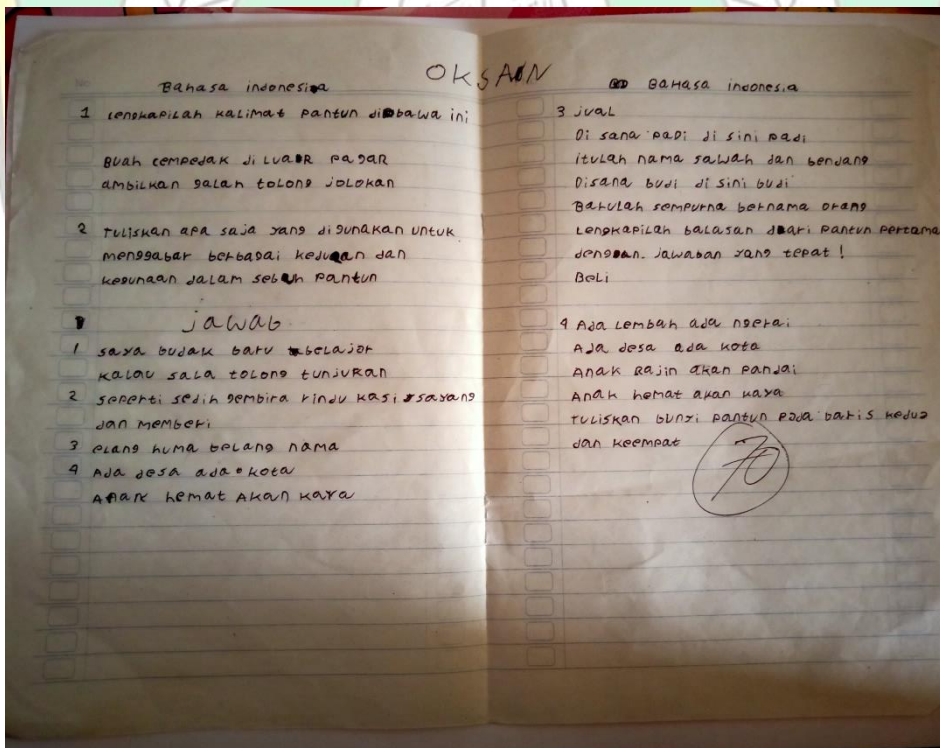 OKSAN
Bahasa indonesia
1 Lengkapilah kalimat pantun dibawa ini
Buah cempedak di luar pagar
ambilkan galah tolong jolokan
2 Tuliskan apa saja yang digunakan untuk
menggabar berbagai keduan dan
kegunaan dalam sebuh pantun
jawab
1 saya budak baru belajar
kalau sala tolong tunjukan
2 seperti sedih gembira rindu kasi sayang
dan memberi
3 elang huma telang nama
4 Ada desa ada kota
Anak hemat Akan kaya
Bahasa indonesia
3 jual
Di sana padi di sini padi
itulah nama sawah dan bendang
Disana budi di sini budi
Barulah sempurna bernama orang
Lengkapilah balasan dari pantun pertama
dengan jawaban yang tepat !
Beli
4 Ada lembah ada ngerai
Ada desa ada kota
Anak Rajin akan pandai
Anak hemat akan kaya
Tuliskan bunyi pantun pada baris kedua
dan keempat
70